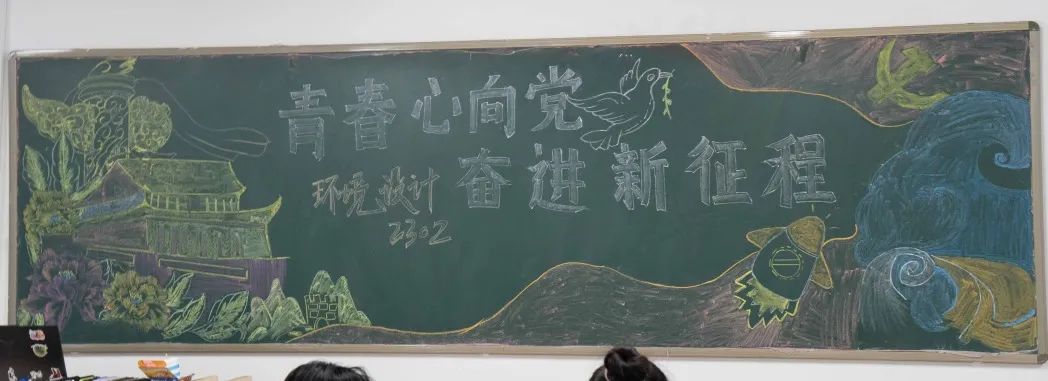 青春心向党
奋进新征程
环境设计
2302